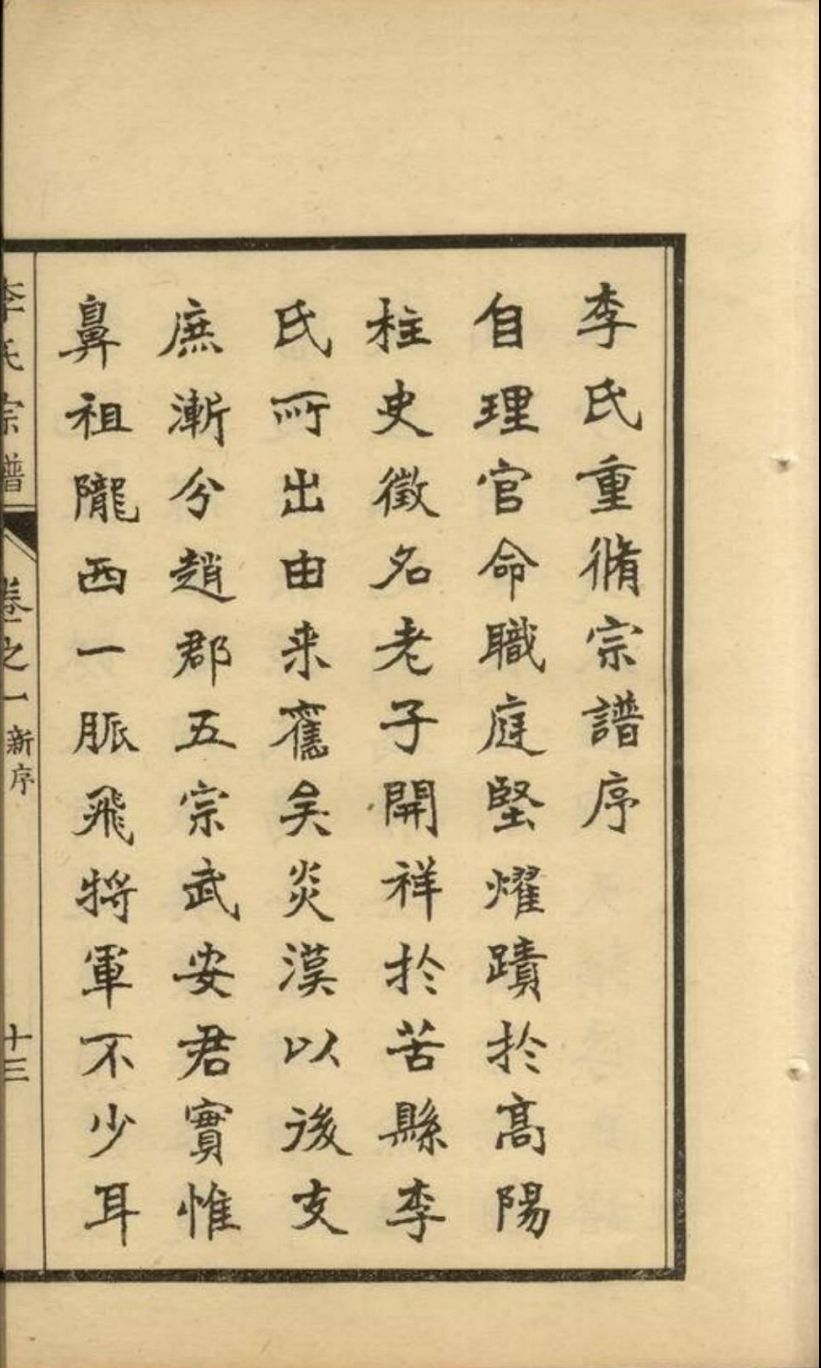 李氏重脩宗譜序
自理官命職庭堅燿蹟於高陽
柱史徵名老子開祥於苦縣李
氏所出由来舊矣炎漢以後支
庶漸分趙郡五宗武安君實惟
鼻祖隴西一脈飛將軍不少耳
李氏宗譜 卷之一 新序 十三